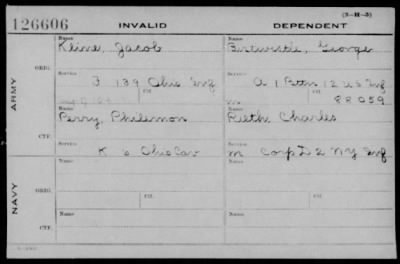 (3-H-3)
126606 INVALID DEPENDENT
Name Name
Kline, Jacob Birtwistle, George
ORIG.
Service Service
F 139 Ohio Inf A 1 Battn 12 U S Inf
Ctf. Ctf.
88059
ARMY
Name Name
Perry, Philemon Rieth Charles
CTF.
Service Service
K 6 Ohio Cav M Corp D 2 N Y Inf
Name Name
NAVY
ORIG.
Service Service
Ctf. Ctf.
Name Name
CTF.
Service Service